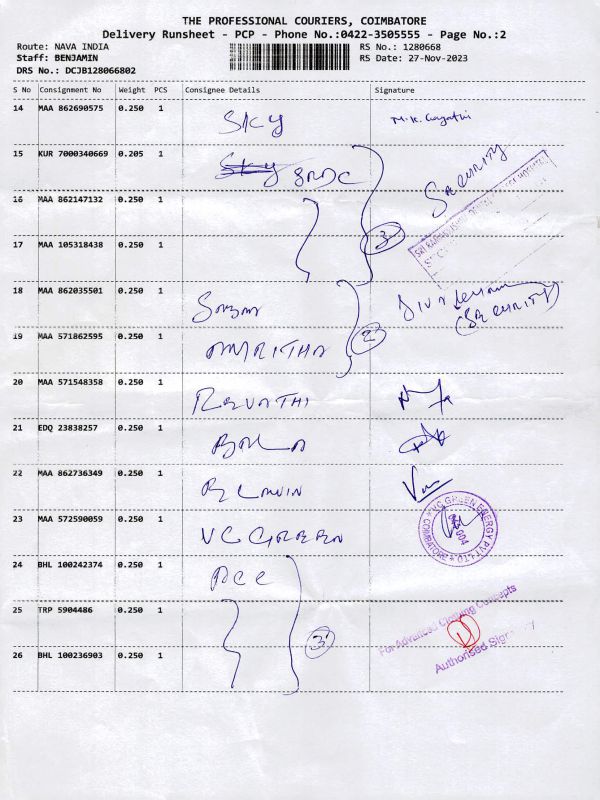 THE PROFESSIONAL COURIERS, COIMBATORE
Delivery Runsheet - PCP - Phone No.:0422-3505555 - Page No.:2
Route: NAVA INDIA RS No.: 1280668
Staff: BENJAMIN RS Date: 27-Nov-2023
DRS No.: DCJB128066802
S No Consignment No Weight PCS Consignee Details Signature
14 MAA 862690575 0.250 1 SKY M.K. Gayathri
15 KUR 7000340669 0.205 1 SKY SRDC SECURITY
16 MAA 862147132 0.250 1
3
17 MAA 105318438 0.250 1
18 MAA 862035501 0.250 1 (SECURITY)
19 MAA 571862595 0.250 1 AMRITHA 2
20 MAA 571548358 0.250 1 REVATHI
21 EDQ 23838257 0.250 1 BALA
22 MAA 862736349 0.250 1
23 MAA 572590059 0.250 1 VC GREEN VC GREEN ENERGY PVT LTD COIMBATORE 641 004
24 BHL 100242374 0.250 1 ACC
25 TRP 5904486 0.250 1 For Advanced Clothing Concepts
3
26 BHL 100236903 0.250 1 Authorised Signatory